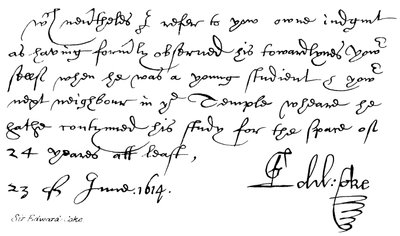 wch neuertheles I refer to yow owne iudgmt
as having formrly observed his towardlynes yowr
selfe when he was a young studient & yowr
next neighbour in ye Temple wheare he
hathe contynued his study for the space of
24 yeares att least,
23 of June. 1614.
Edw: Coke
Sir Edward Coke